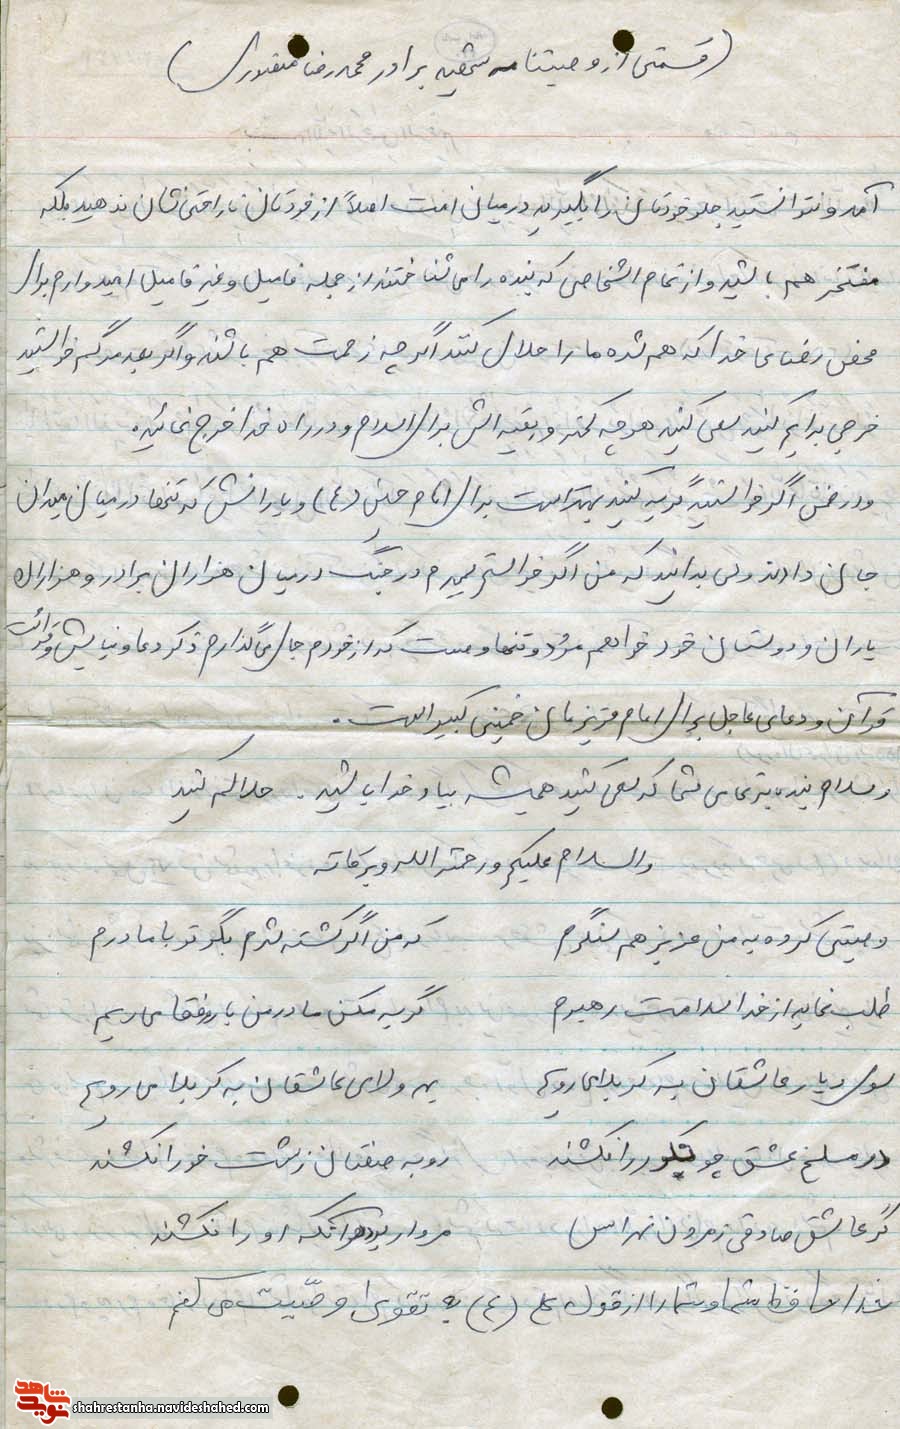 (قسمتی از وصیتنامه شهید برادر محمدرضا)
آمد و نتوانستید جلو خودتان را بگیرید در میان امت اصلاً از خودتان ناراحتی نشان ندهید بلکه
مفتخر هم باشید و از تمام اشخاصی که بنده را می‌شناختند از جمله فامیل و غیر فامیل امیدوارم برای
محض رضای خدا که هم شده ما را حلال کنند اگر چه زحمت هم باشند و اگر بعد مرگم خواستید
خرجی برایم کنید سعی کنید هر چه کمتر و بقیه‌اش برای اسلام و در راه خدا خرج نمائید.
و در ضمن اگر خواستید گریه کنید بهتر است برای امام حسین (ع) و یارانش که تنها در میان میدان
جان دادند ولی بدانید که من اگر خواستم بمیرم در جنگ در میان هزاران برادر و هزاران
یاران و دوستان خود خواهم مرد و تنها وصیت که از خودم جای می‌گذارم ذکر دعا و نیایش و قرائت
قرآن و دعای عاجل برای امام عزیزمان خمینی کبیر است.
و سلام بنده بر تمامی شما که سعی کنید همیشه بیاد خدا باشید. حلالم کنید
والسلام علیکم و رحمته الله و برکاته
وصیتی کرده به من عزیز هم سنگرم که من اگر کشته شدم بگو تو با مادرم
طلب نماید از خدا سلامت رهبرم گریه مکن مادر من با رفقا می‌ریم
سوی دیار عاشقان به کربلا می‌رویم بهر ولای عاشقان به کربلا می‌رویم
در مسلخ عشق جز نکو را نکشند روبه صفتان زشت خو را نکشند
گر عاشق صادقی ز مردن نهراس مردار بود هر آنکه او را نکشند
خدا حافظ شما و شما را از قول علی (ع) به تقوی وصیّت می‌کنم
شاهد
نوید
shahrestanha.navideshahed.com